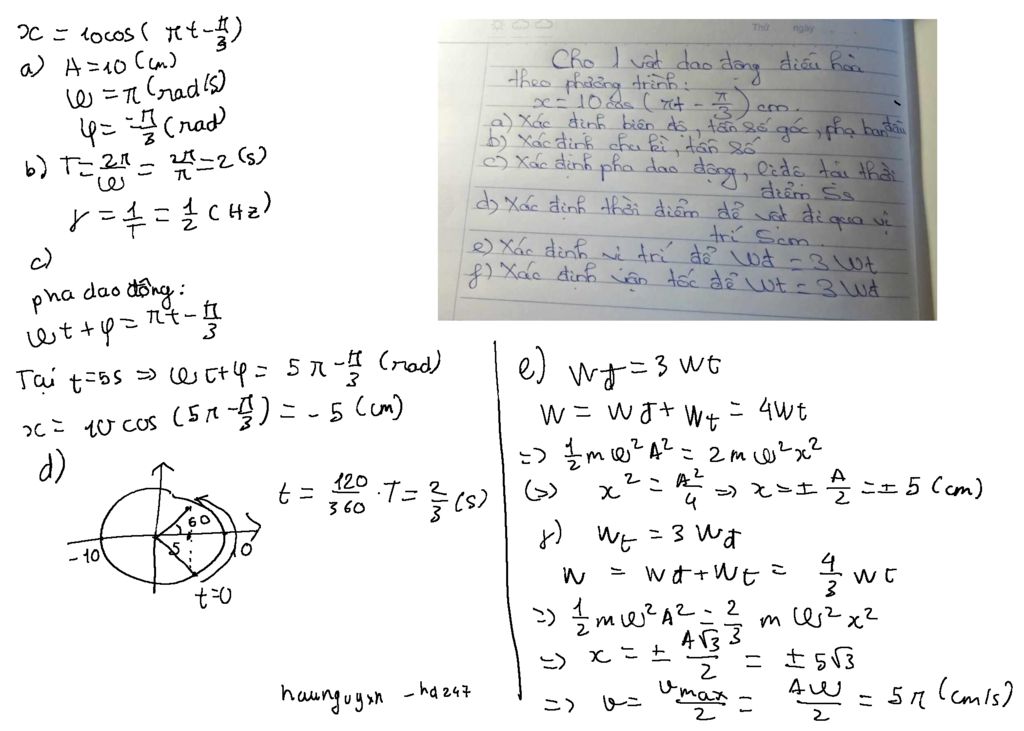 x = 10cos( πt - π/3)
a) A = 10 (cm)
ω = π (rad/s)
φ = -π/3 (rad)
b) T = 2π/ω = 2π/π = 2 (s)
f = 1/T = 1/2 (Hz)
c)
pha dao động:
ωt + φ = πt - π/3
Tại t=5s => ωt+φ = 5π - π/3 (rad)
x = 10 cos (5π - π/3) = - 5 (cm)
d)
60
-10
5
10
t=0
t = 120/360 . T = 2/3 (s)
haunguyxn - hd247
Thứ ngày
Cho 1 vật dao động điều hòa
theo phương trình:
x = 10cos (πt - π/3) cm.
a) Xác định biên độ, tần số góc, pha ban đầu
b) Xác định chu kì, tần số
c) Xác định pha dao động, li độ tại thời
điểm 5s
d) Xác định thời điểm để vật đi qua vị
trí 5cm.
e) Xác định vị trí để Wđ = 3Wt
f) Xác định vận tốc để Wt = 3Wđ
e) Wđ = 3 Wt
W = Wđ + Wt = 4Wt
=> 1/2 m ω² A² = 2 m ω² x²
(=> x² = A²/4 => x = ± A/2 = ± 5 (cm)
f) Wt = 3 Wđ
W = Wđ + Wt = 4/3 Wt
=> 1/2 m ω² A² = 2/3 m ω² x²
=> x = ± A√3/2 = ± 5√3
=> v = vmax/2 = Aω/2 = 5π (cm/s)